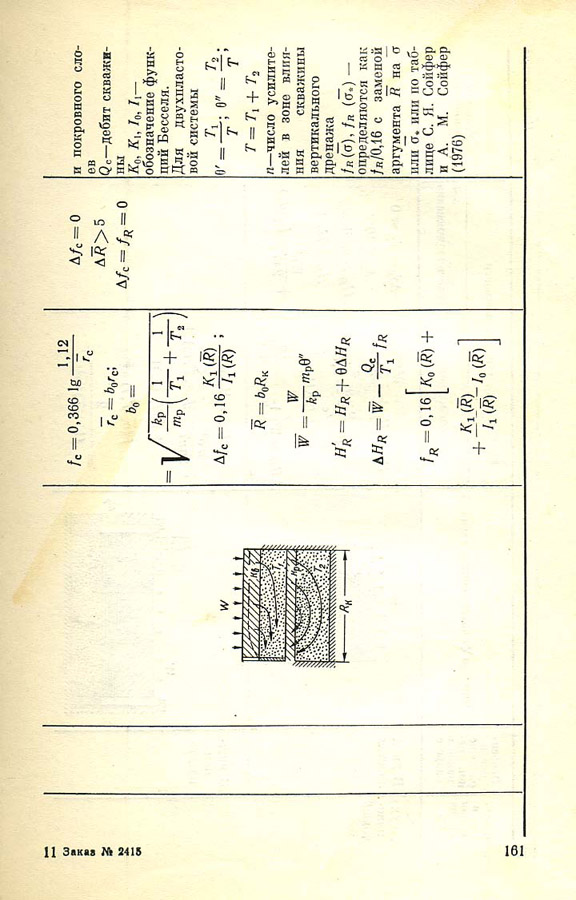 f_c = 0,366 lg 1,12 / r̄_c
r̄_c = b_0 r_c;
b_0 =
= √( k_p / m_p ( 1 / T_1 + 1 / T_2 ) )
Δf_c = 0,16 K_1 (R̄) / I_1 (R̄) ;
R̄ = b_0 R_к
W̄ = W / k_p m_p θ″
H′_R = H_R + θΔH_R
ΔH_R = W̄ − Q_c / T_1 f_R
f_R = 0,16 [ K_0 (R̄) +
+ K_1 (R̄) / I_1 (R̄) I_0 (R̄) ]
Δf_c = 0
ΔR̄ > 5
Δf_c = f_R = 0
и покровного сло-
ев
Q_c—дебит скважи-
ны
K_0, K_1, I_0, I_1—
обозначение функ-
ций Бесселя.
Для двухпласто-
вой системы
θ′ = T_1 / T ; θ″ = T_2 / T ;
T = T_1 + T_2
n—число усилите-
лей в зоне влия-
ния скважины
вертикального
дренажа
f_R (σ̄), f_R (σ̄_*) —
определяются как
f_R/0,16 с заменой
аргумента R̄ на σ̄
или σ̄_* или по таб-
лице С. Я. Сойфер
и А. М. Сойфер
(1976)
W
T_2
R_к
11 Заказ № 2415
161